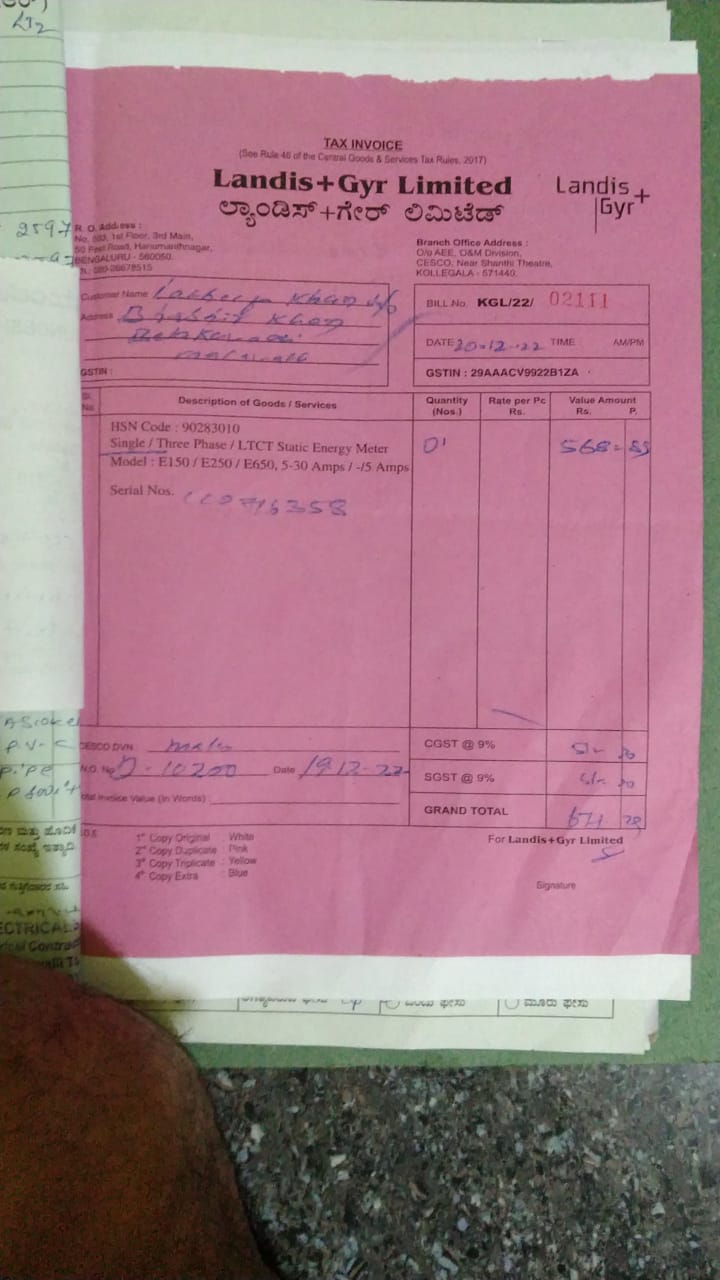 2597
TAX INVOICE
(See Rule 46 of the Central Goods & Services Tax Rules, 2017)
Landis+Gyr Limited
ಲ್ಯಾಂಡಿಸ್+ಗೇರ್ ಲಿಮಿಟೆಡ್
Landis
Gyr+
R. O. Address :
No. 593, 1st Floor, 3rd Main,
50 Feet Road, Hanumanthnagar,
BENGALURU - 560050.
080-26678515
Branch Office Address :
O/o AEE, O&M Division,
CESCO, Near Shanthi Theatre,
KOLLEGALA - 571440.
Customer Name Khan s/o
Address Khan
GSTIN :
BILL No. KGL/22/ 02111
DATE 20-12-22 TIME AM/PM
GSTIN : 29AAACV9922B1ZA
Sl. No Description of Goods / Services Quantity (Nos.) Rate per Pc Rs. Value Amount Rs. P.
HSN Code : 90283010
Single / Three Phase / LTCT Static Energy Meter 01 568-85
Model : E150 / E250 / E650, 5-30 Amps / -/5 Amps
Serial Nos. 716358
CESCO DVN
N.O. No D-10200 Date 19-12-22
Total Invoice Value (In Words)
CGST @ 9% 51-
SGST @ 9% 51-
GRAND TOTAL 671
1st Copy Original : White
2nd Copy Duplicate : Pink
3rd Copy Triplicate : Yellow
4th Copy Extra : Blue
For Landis+Gyr Limited
Signature
ECTRICAL
rical Contra
ಒಂದು ಫೇಸು
ಮೂರು ಫೇಸು